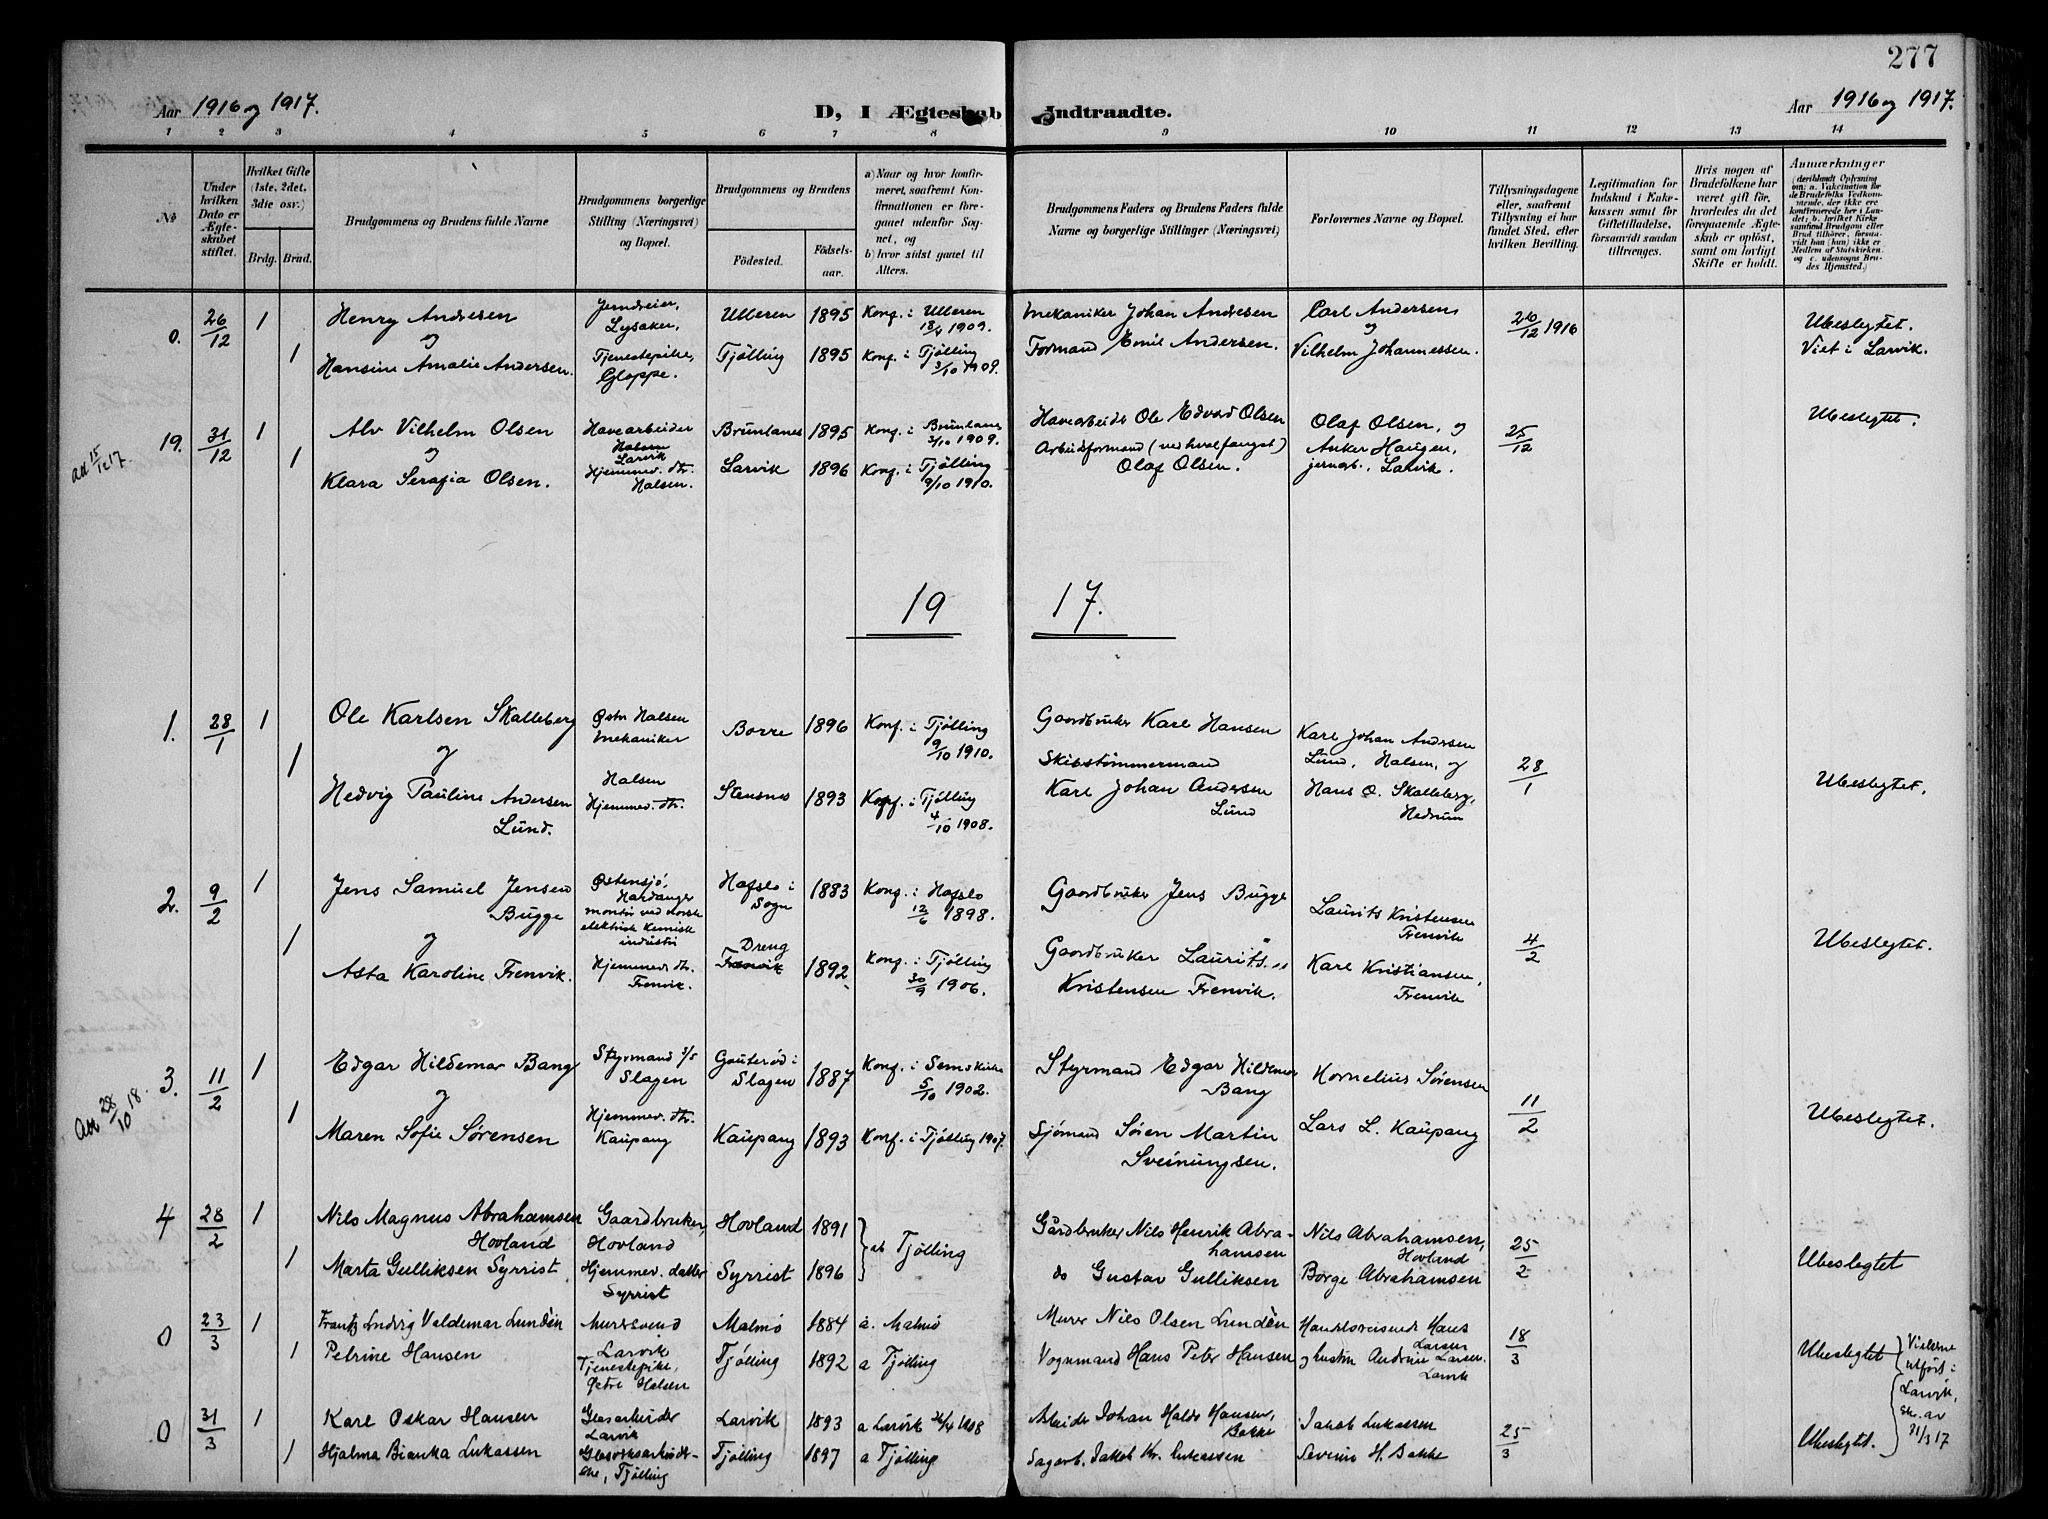 277
Aar 1916 og 1917.
D, I Ægteskab Indtraadte.
Aar 1916 og 1917.
1 2 3 4 5 6 7 8 9 10 11 12 13 14
No
Under hvilken Dato er Ægteskabet stiftet.
Hvilket Gifte (1ste, 2det, 3die osv.)
Brdg. Brud.
Brudgommens og Brudens fulde Navne
Brudgommens borgerlige Stilling (Næringsvei) og Bopæl.
Brudgommens og Brudens
Fødested. Fødselsaar.
a) Naar og hvor konfirmeret, saafremt Konfirmationen er foregaaet udenfor Sognet, og
b) hvor sidst gaaet til Alters.
Brudgommens Faders og Brudens Faders fulde Navne og borgerlige Stillinger (Næringsvei)
Forlovernes Navne og Bopæl.
Tillysningsdagene eller, saafremt Tillysning ei har fundet Sted, efter hvilken Bevilling.
Legitimation for Indskud i Enkekassen samt for Giftetilladelse, forsaavidt saadan tiltrænges.
Hvis nogen af Brudefolkene har været gift før, hvorledes da det foregaaende Ægteskab er opløst, samt om lovligt Skifte er holdt.
Anmærkninger
(deriblandt Oplysning om: a. Vakcination for de Brudefolks Vedkommende, der ikke ere konfirmerede her i Landet; b. hvilket Kirkesamfund Brudgom eller Brud tilhører, forsaavidt han (hun) ikke er Medlem af Statskirken, og c. udensogns Brudes Hjemsted.)
0. 26/12 1 Henry Andresen Jerndreier, Lysaker, Ulleren 1895 Konf. i Ulleren 18/4 1909. Mekaniker Johan Andresen Carl Andersen 26/12 1916 Ubeslegtet. Viet i Larvik.
og og
1 Hansine Amalie Andersen. Tjenestepike, Gloppe. Tjölling 1895 Konf. i Tjölling 3/10 1909. Formand Emil Andersen. Vilhelm Johannessen.
Att 15/12 17.
19. 31/12 1 Alv Vilhelm Olsen Havearbeider Halsen Larvik Brunlanes 1895 Konf. i Brunlanes 3/10 1909. Havearbeider Ole Edvard Olsen Olaf Olsen, og 25/12 Ubeslegtet.
og
1 Klara Serafia Olsen. Hjemmev. dtr. Halsen. Larvik 1896 Konf. i Tjölling 9/10 1910. Arbeidsformand (ved hvalfangst) Olaf Olsen. Anker Haugen, jernarb., Larvik.
19 17.
1. 28/1 1 Ole Karlsen Skalleberg Østre Halsen Mekaniker Borre 1896 Konf. i Tjölling 9/10 1910. Gaardbruker Karl Hansen Karl Johan Andersen Lund, Halsen, og 28/1 Ubeslegtet.
og
1 Hedvig Pauline Andersen Lund. Halsen Hjemmev. dtr. Stensnes 1893 Konf. i Tjölling 4/10 1908. Skibstømmermand Karl Johan Andersen Lund Hans O. Skalleberg, Hedrum
2. 9/2 1 Jens Samuel Jensen Bugge Østensjö, Hardanger montör ved norsk elektrisk kemisk industri Hafslo i Sogn 1883 Konf. i Hafslo 12/6 1898. Gaardbruker Jens Bugge Laurits Kristensen Frenvik 4/2 Ubeslegtet.
og
1 Asta Karoline Frenvik. Hjemmev. dtr. Frenvik. Dreng Frenvik 1892 Konf. i Tjölling 30/9 1906. Gaardbruker Laurits Kristensen Frenvik. Karl Kristiansen, Frenvik
Att 28/10 18.
3. 11/2 1 Edgar Hildemar Bang Styrmand Slagen Gauterød i Slagen 1887 Konf. i Sems Kirke 5/10 1902. Styrmand Edgar Hildemar Bang Kornelius Sørensen 11/2 Ubeslegtet.
og
1 Maren Sofie Sørensen Hjemmev. dtr. Kaupang Kaupang 1893 Konf. i Tjölling 1907. Sjömand Søren Martin Sveinungsen. Lars L. Kaupang
4 28/2 1 Nils Magnus Abrahamsen Hovland Gaardbruker, Hovland Hovland 1891 ab Tjölling Gårdbruker Nils Henrik Abrahamsen Nils Abrahamsen, Hovland 25/2 Ubeslegtet
1 Marta Gulliksen Syrrist Hjemmev. datter Syrrist Syrrist 1896 do Gustav Gulliksen Borge Abrahamsen
0 23/3 1 Frantz Ludvig Valdemar Lundén Mursvend Larvik Malmø 1884 a. Malmø Murer Nils Olsen Lundén Handelsreisende Hans Larsen 18/3 Ubeslegtet
1 Petrine Hansen Tjenestepike, Østre Halsen Tjölling 1892 a Tjölling Vognmand Hans Peter Hansen og hustru Andrine Larsen. Larvik
0 31/3 1 Karl Oskar Hansen Glasarbeider Larvik Larvik 1893 a Larvik 26/4 1908 Arbeider Johan Hansen, Bakke Jakob Lukassen 25/3 Ubeslegtet.
1 Hjalma Bianka Lukassen Tjölling Tjölling 1897 a Tjölling Sagarb. Jakob Kr. Lukassen Severin H. Bakke
Vielserne utført i Larvik, 31/3 17